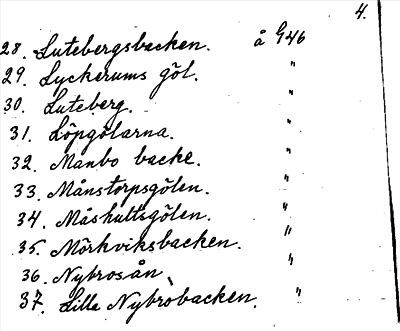 4.
28. Lutebergsbacken. å G46
29. Lyckerums göl. "
30. Luteberg. "
31. Löpgölarna. "
32. Manbo backe. "
33. Månstorpsgölen. "
34. Måshultsgölen. "
35. Mörkviksbacken. "
36. Nybrosån "
37. Lilla Nybrobacken. "